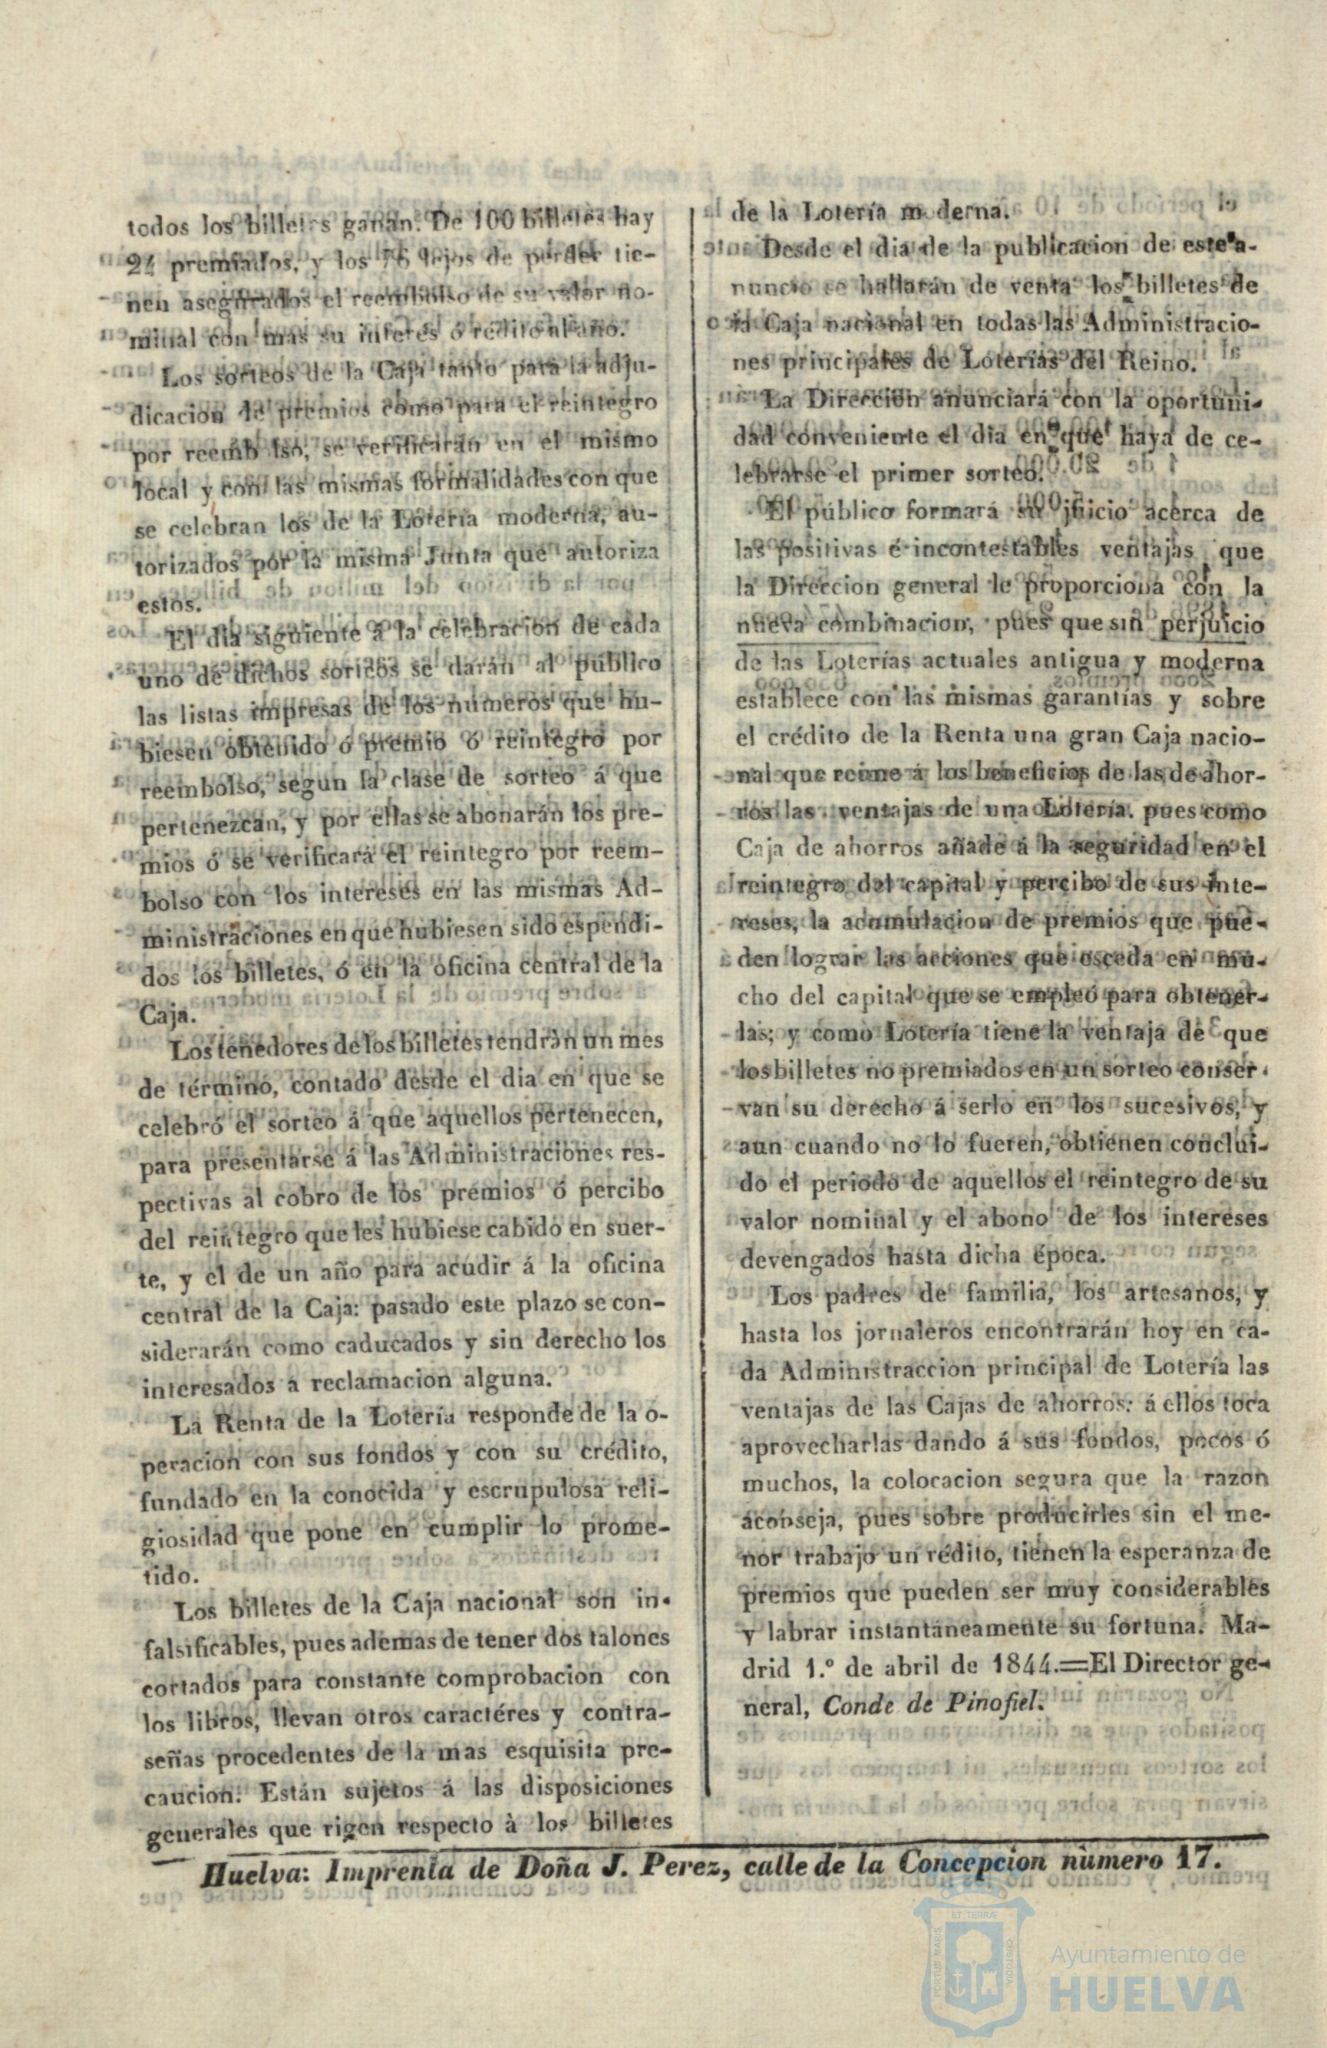 todos los billetes ganan. De 100 billetes hay
24 premiados, y los 76 lejos de perder tie-
nen asegurados el reembolso de su valor no-
minal con mas su interes ó rédito al año.
Los sorteos de la Caja tanto para la adju-
dicacion de premios como para el reintegro
por reemb lso, se verificarán en el mismo
local y con las mismas formalidades con que
se celebran los de la Lotería moderna, au-
torizados por la misma Junta que autoriza
estos.
El dia siguiente á la celebracion de cada
uno de dichos sorteos se darán al público
las listas impresas de los números que hu-
biesen obtenido ó premio ó reintegro por
reembolso, segun la clase de sorteo á que
pertenezcan, y por ellas se abonarán los pre-
mios ó se verificará el reintegro por reem-
bolso con los intereses en las mismas Ad-
ministraciones en que hubiesen sido espendi-
dos los billetes, ó en la oficina central de la
Caja.
Los tenedores de los billetes tendràn un mes
de término, contado desde el dia en que se
celebró el sorteo á que aquellos pertenecen,
para presentarse á las Administraciones res-
pectivas al cobro de los premios ó percibo
del reintegro que les hubiese cabido en suer-
te, y el de un año para acudir á la oficina
central de la Caja: pasado este plazo se con-
siderarán como caducados y sin derecho los
interesados a reclamacion alguna.
La Renta de la Lotería responde de la o-
peracion con sus fondos y con su crédito,
fundado en la conocida y escrupulosa reli-
giosidad que pone en cumplir lo prome-
tido.
Los billetes de la Caja nacional son in-
falsificables, pues ademas de tener dos talones
cortados para constante comprobacion con
los libros, llevan otros caractéres y contra-
señas procedentes de la mas esquisita pre-
caucion. Están sujetos á las disposiciones
generales que rigen respecto à los billetes
de la Lotería m derna.
Desde el dia de la publicacion de este a-
nuncio se hallarán de venta los billetes de
la Caja nacional en todas las Administracio-
nes principales de Loterías del Reino.
La Direccion anunciará con la oportuni-
dad conveniente el dia en que haya de ce-
lebrarse el primer sorteo.
El público formará su juicio acerca de
las positivas é incontestables ventajas que
la Direccion general le proporciona con la
nueva combinacion, pues que sin perjuicio
de las Loterías actuales antigua y moderna
establece con las mismas garantías y sobre
el crédito de la Renta una gran Caja nacio-
nal que reune á los beneficios de las de ahor-
ros las ventajas de una Lotería. pues como
Caja de ahorros añade á la seguridad en el
reintegro del capital y percibo de sus inte-
reses, la acumulacion de premios que pue-
den lograr las acciones que esceda en mu-
cho del capital que se empleó para obtener-
las; y como Lotería tiene la ventaja de que
los billetes no premiados en un sorteo conser-
van su derecho á serlo en los sucesivos, y
aun cuando no lo fueren, obtienen conclui-
do el periodo de aquellos el reintegro de su
valor nominal y el abono de los intereses
devengados hasta dicha época.
Los padres de familia, los artesanos, y
hasta los jornaleros encontrarán hoy en ca-
da Administraccion principal de Lotería las
ventajas de las Cajas de ahorros: á ellos toca
aprovecharlas dando á sus fondos, pocos ó
muchos, la colocacion segura que la razon
aconseja, pues sobre producirles sin el me-
nor trabajo un rédito, tienen la esperanza de
premios que pueden ser muy considerables
y labrar instantáneamente su fortuna. Ma-
drid 1.º de abril de 1844.=El Director ge-
neral, Conde de Pinofiel.
Huelva: Imprenta de Doña J. Perez, calle de la Concepcion nùmero 17.
PORTUS MARIS ET TERRÆ CUSTODIA
Ayuntamiento de
HUELVA